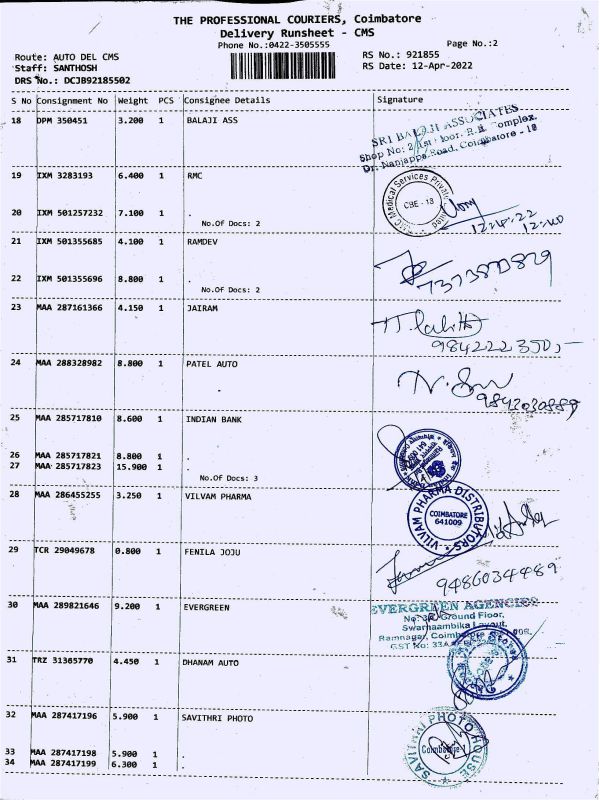 THE PROFESSIONAL COURIERS, Coimbatore
Delivery Runsheet - CMS
Phone No.:0422-3505555
Page No.:2
Route: AUTO DEL CMS
Staff: SANTHOSH
DRS No.: DCJB92185502
RS No.: 921855
RS Date: 12-Apr-2022
S No Consignment No Weight PCS Consignee Details Signature
18 DPM 350451 3.200 1 BALAJI ASS
SRI BALAJI ASSOCIATES
19 IXM 3283193 6.400 1 RMC
CBE - 18
20 IXM 501257232 7.100 1 .
No.Of Docs: 2
12-4-22
21 IXM 501355685 4.100 1 RAMDEV
22 IXM 501355696 8.800 1 .
No.Of Docs: 2
23 MAA 287161366 4.150 1 JAIRAM
24 MAA 288328982 8.800 1 PATEL AUTO
.
25 MAA 285717810 8.600 1 INDIAN BANK
26 MAA 285717821 8.800 1 .
27 MAA 285717823 15.900 1 .
No.Of Docs: 3
28 MAA 286455255 3.250 1 VILVAM PHARMA
VILVAM PHARMA DISTRIBUTORS
COIMBATORE
641009
29 TCR 29049678 0.800 1 FENILA JOJU
9486034489
30 MAA 289821646 9.200 1 EVERGREEN
EVERGREEN AGENCIES
Ground Floor,
Swarnaambika Layout,
31 TRZ 31365770 4.450 1 DHANAM AUTO
32 MAA 287417196 5.900 1 SAVITHRI PHOTO
SAVITHRI PHOTO HOUSE
33 MAA 287417198 5.900 1 .
34 MAA 287417199 6.300 1 .